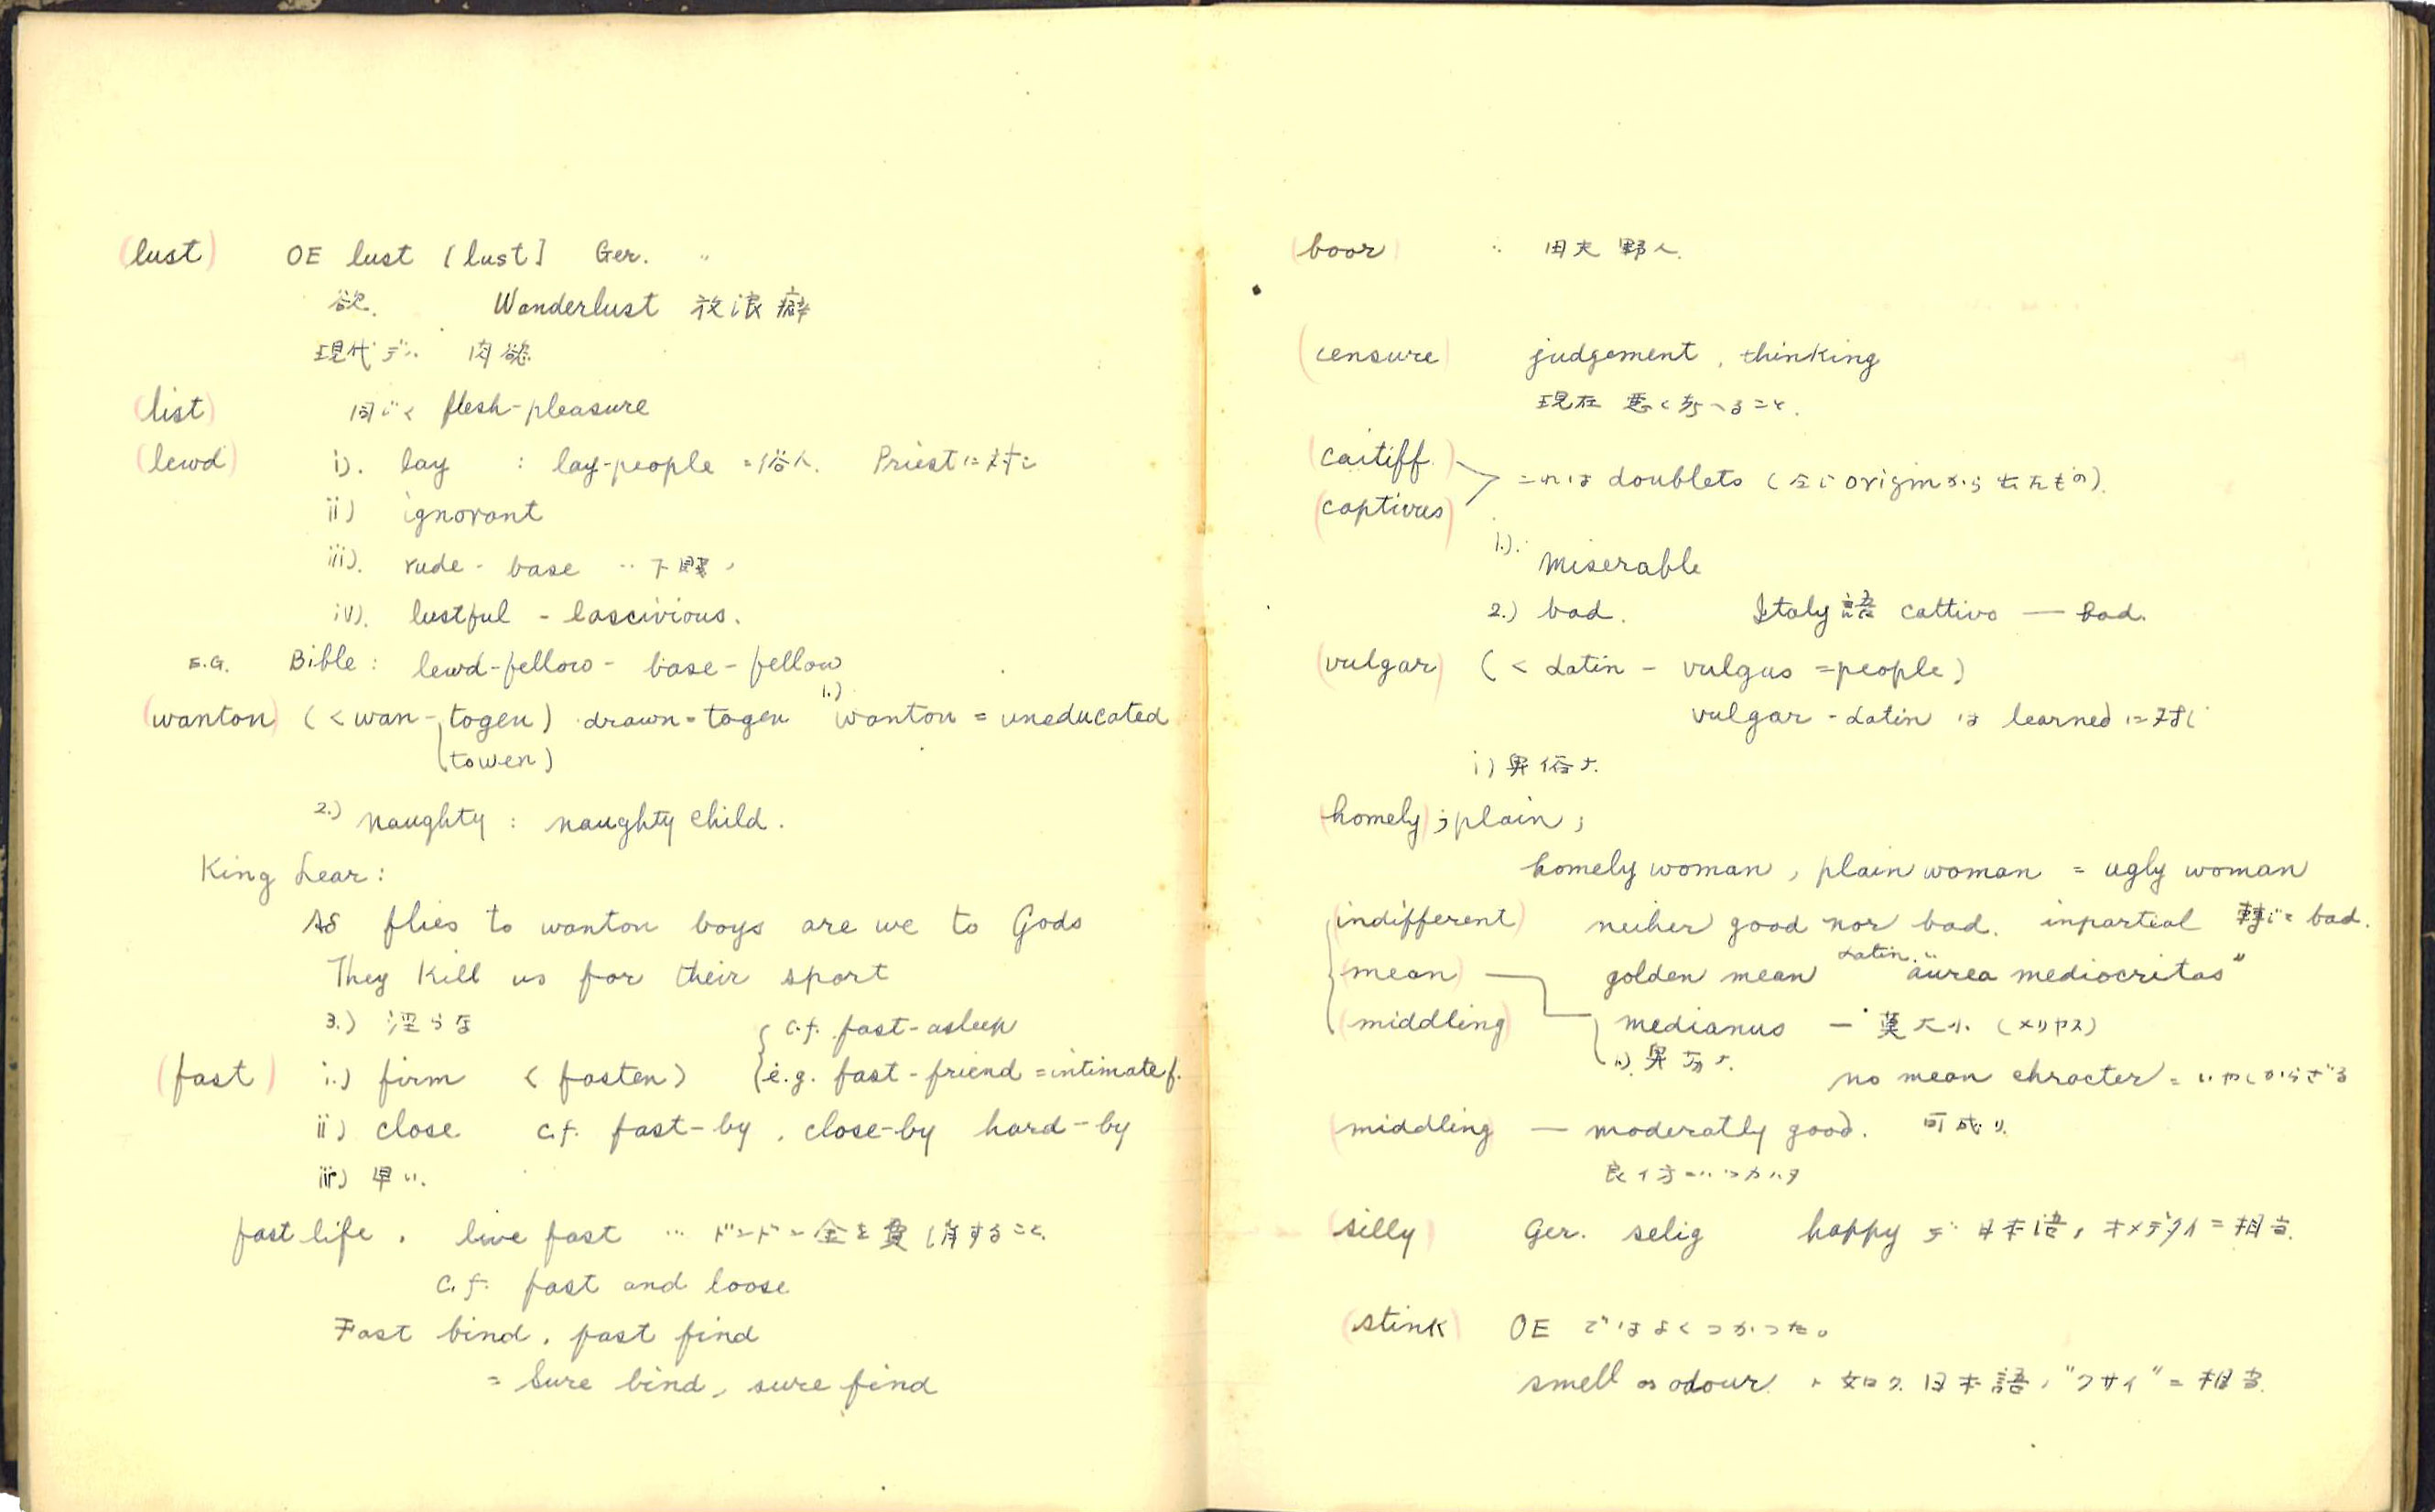 (lust) OE lust [lust] Ger. 〃
欲. Wanderlust 放浪癖
現代デハ 肉慾
(list) 同じく flesh-pleasure
(lewd) i). lay : lay-people = 俗人. Priestに対シ
ii) ignorant
iii). rude - base ‥ 下賤
iv). lustful - lascivious.
E.G. Bible: lewd-fellow - base-fellow
(wanton) (< wan-togen) drawn = togen 1.) wanton = uneducated
(towen)
2.) naughty : naughty child.
King Lear:
As flies to wanton boys are we to Gods
They kill us for their sport
3.) 淫らな
c.f. fast-asleep
(fast) i.) firm < fasten) e.g. fast-friend = intimate f.
ii) close c.f. fast-by, close-by hard-by
iii) 早い.
fast life. live fast … ドンドン金を費消すること.
c.f. fast and loose
Fast bind, fast find
= Sure bind, sure find
(boor) : 田夫野人.
(censure) judgement, thinking
現在 悪く考へること.
(caitiff)
これは doublets (同じ originから出たもの).
(captivus)
1.). miserable
2.) bad. Italy語 cattivo — bad.
(vulgar) (< Latin - vulgus = people)
vulgar-Latin は learned に対し
i) 卑俗ナ.
(homely); plain;
homely woman, plain woman = ugly woman
(indifferent) neiher good nor bad. inparteal 転じ= bad.
(mean) golden mean Latin. "aurea mediocritas"
(middling) medianus — 莫大小 (メリヤス)
ii.) 卑劣ナ.
no mean chracter = いやしからざる
(middling) — moderatly good. 可成リ
良イ方ニハツカハヌ
(silly) Ger. selig happy デ 日本語ノオメデタイニ相当.
(stink) OE ではよくつかった。
smell or odour ノ如ク 日本語ノ"クサイ"ニ相当.